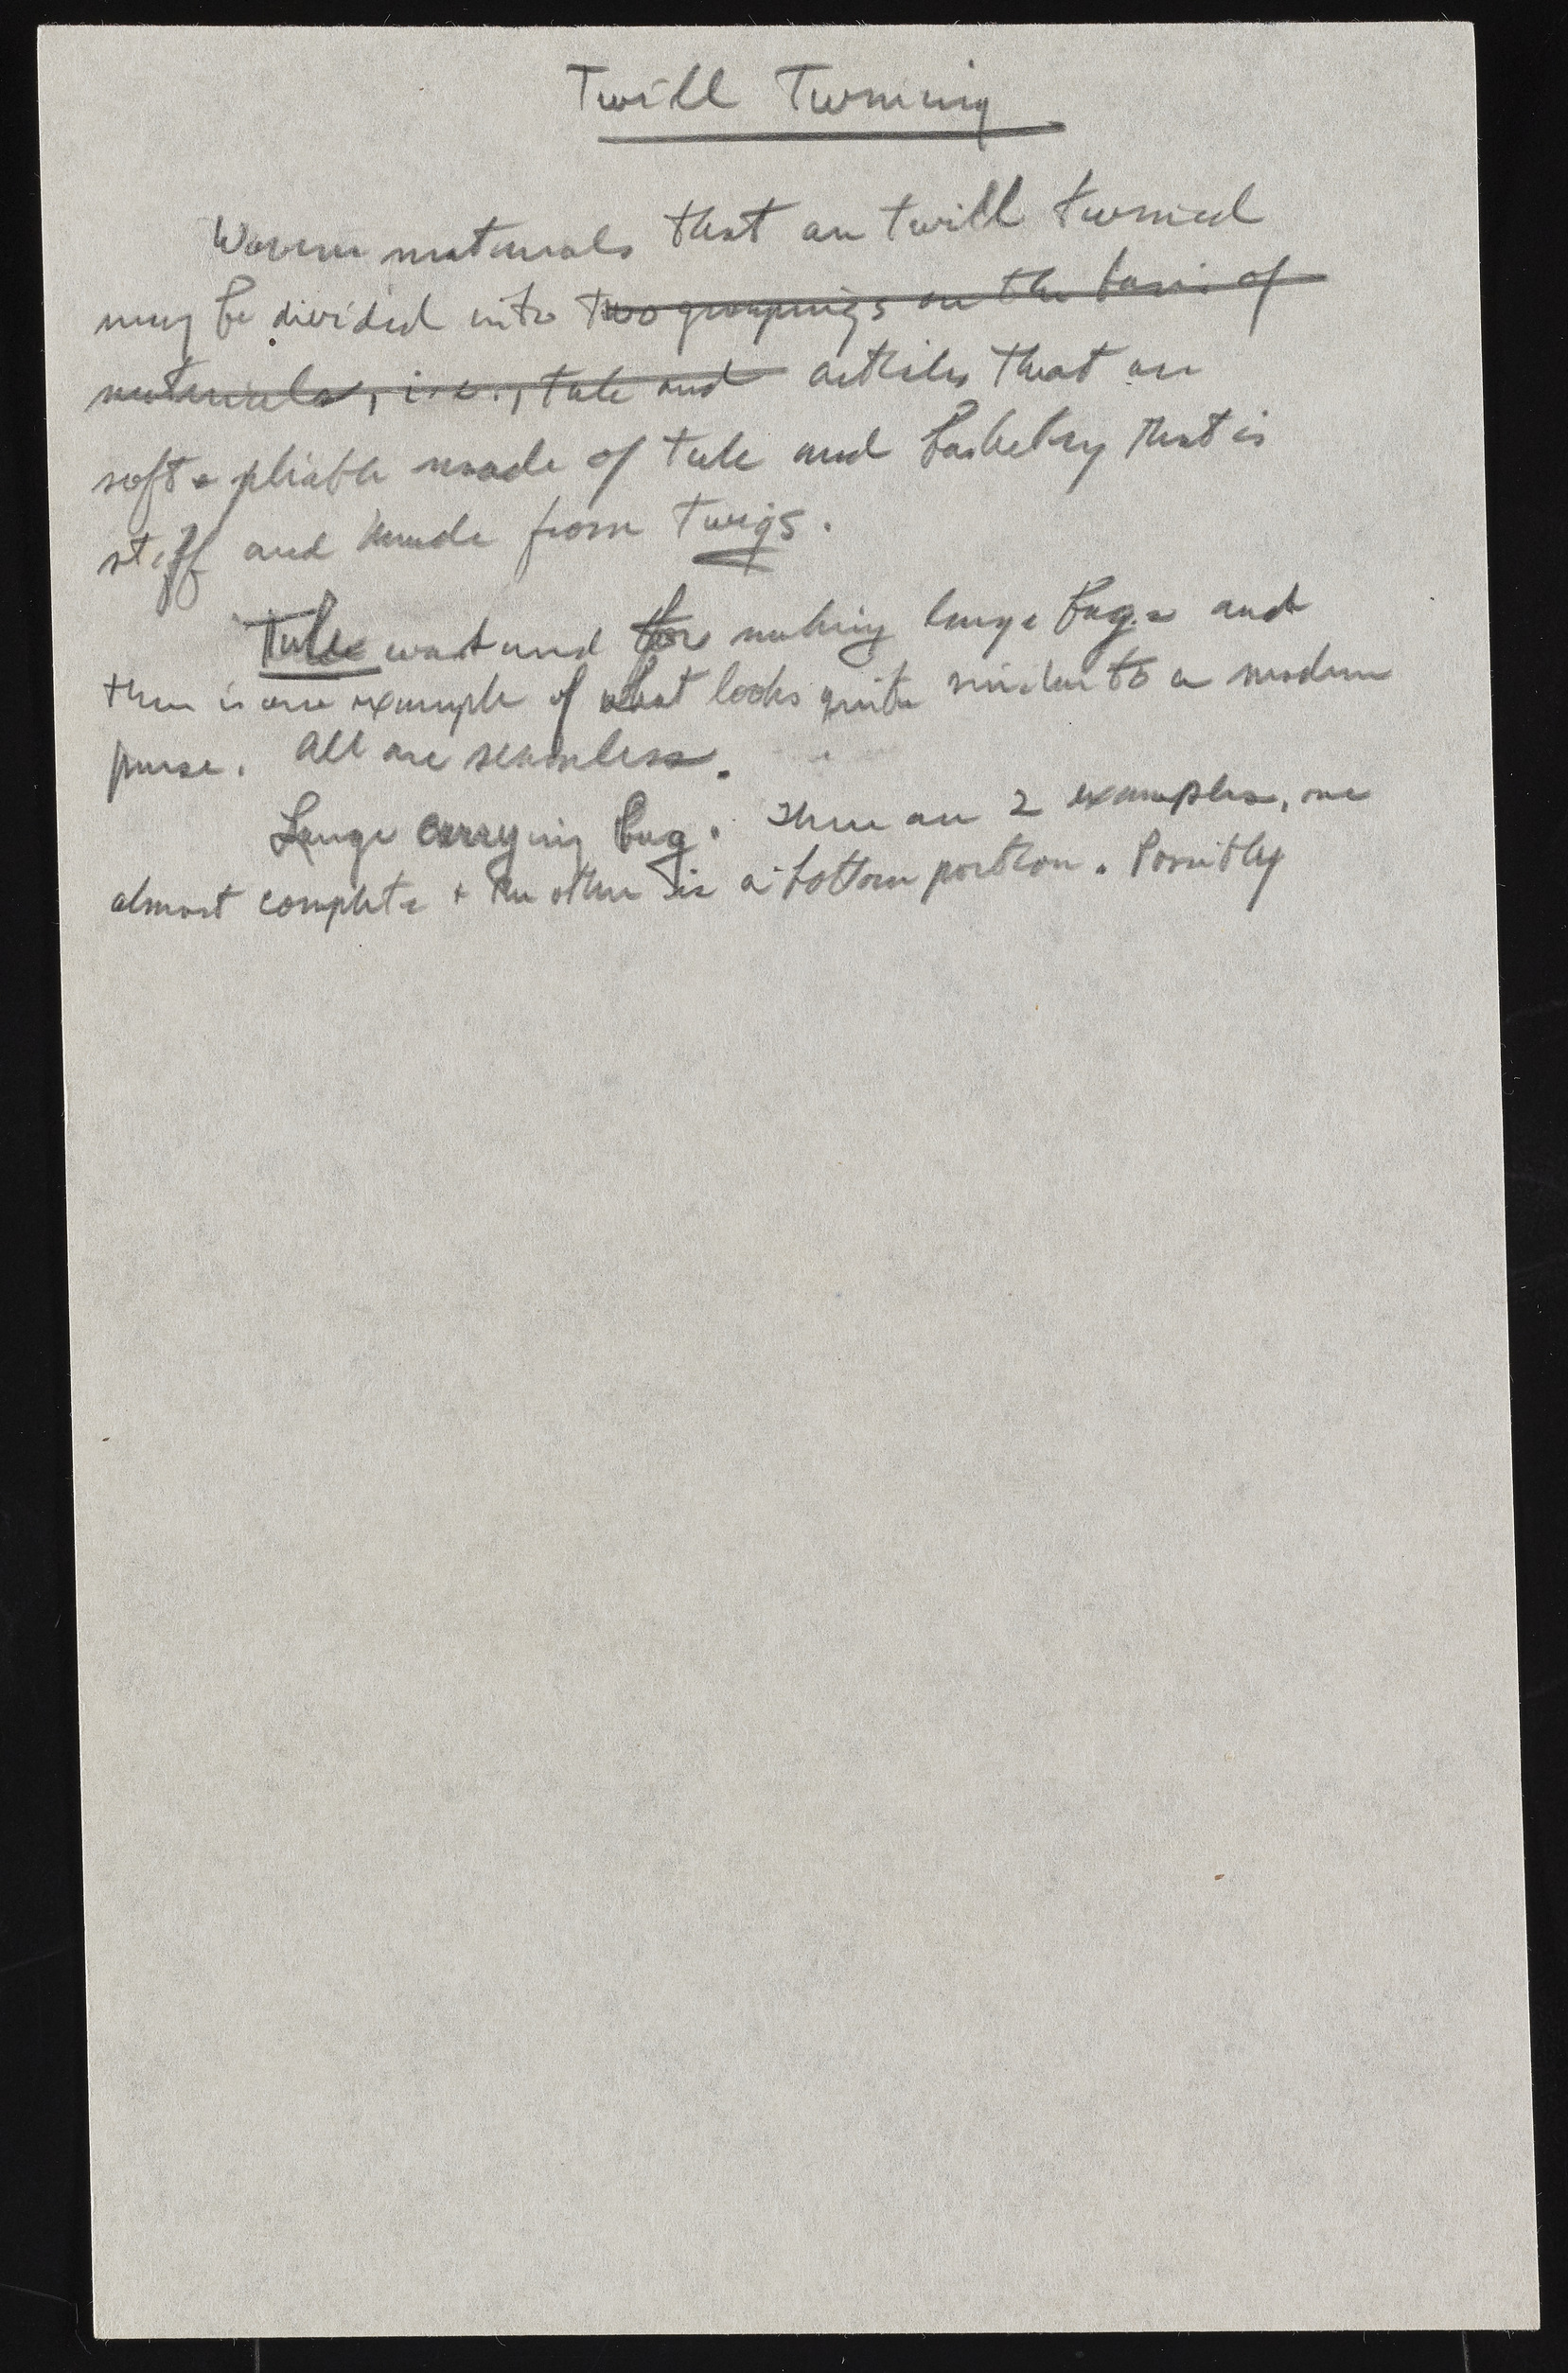 Twill Twining
Woven materials that are twill twined
may be divided into two groupings on the basis of
materials, i.e., tule and articles that are
soft & pliable made of tule and basketry that is
stiff and made from twigs.
Tule was used for making large bags and
there is one example of what looks quite similar to a modern
purse. All are seamless.
Large carrying bag. There are 2 examples, one
almost complete + the other is a bottom portion. Possibly